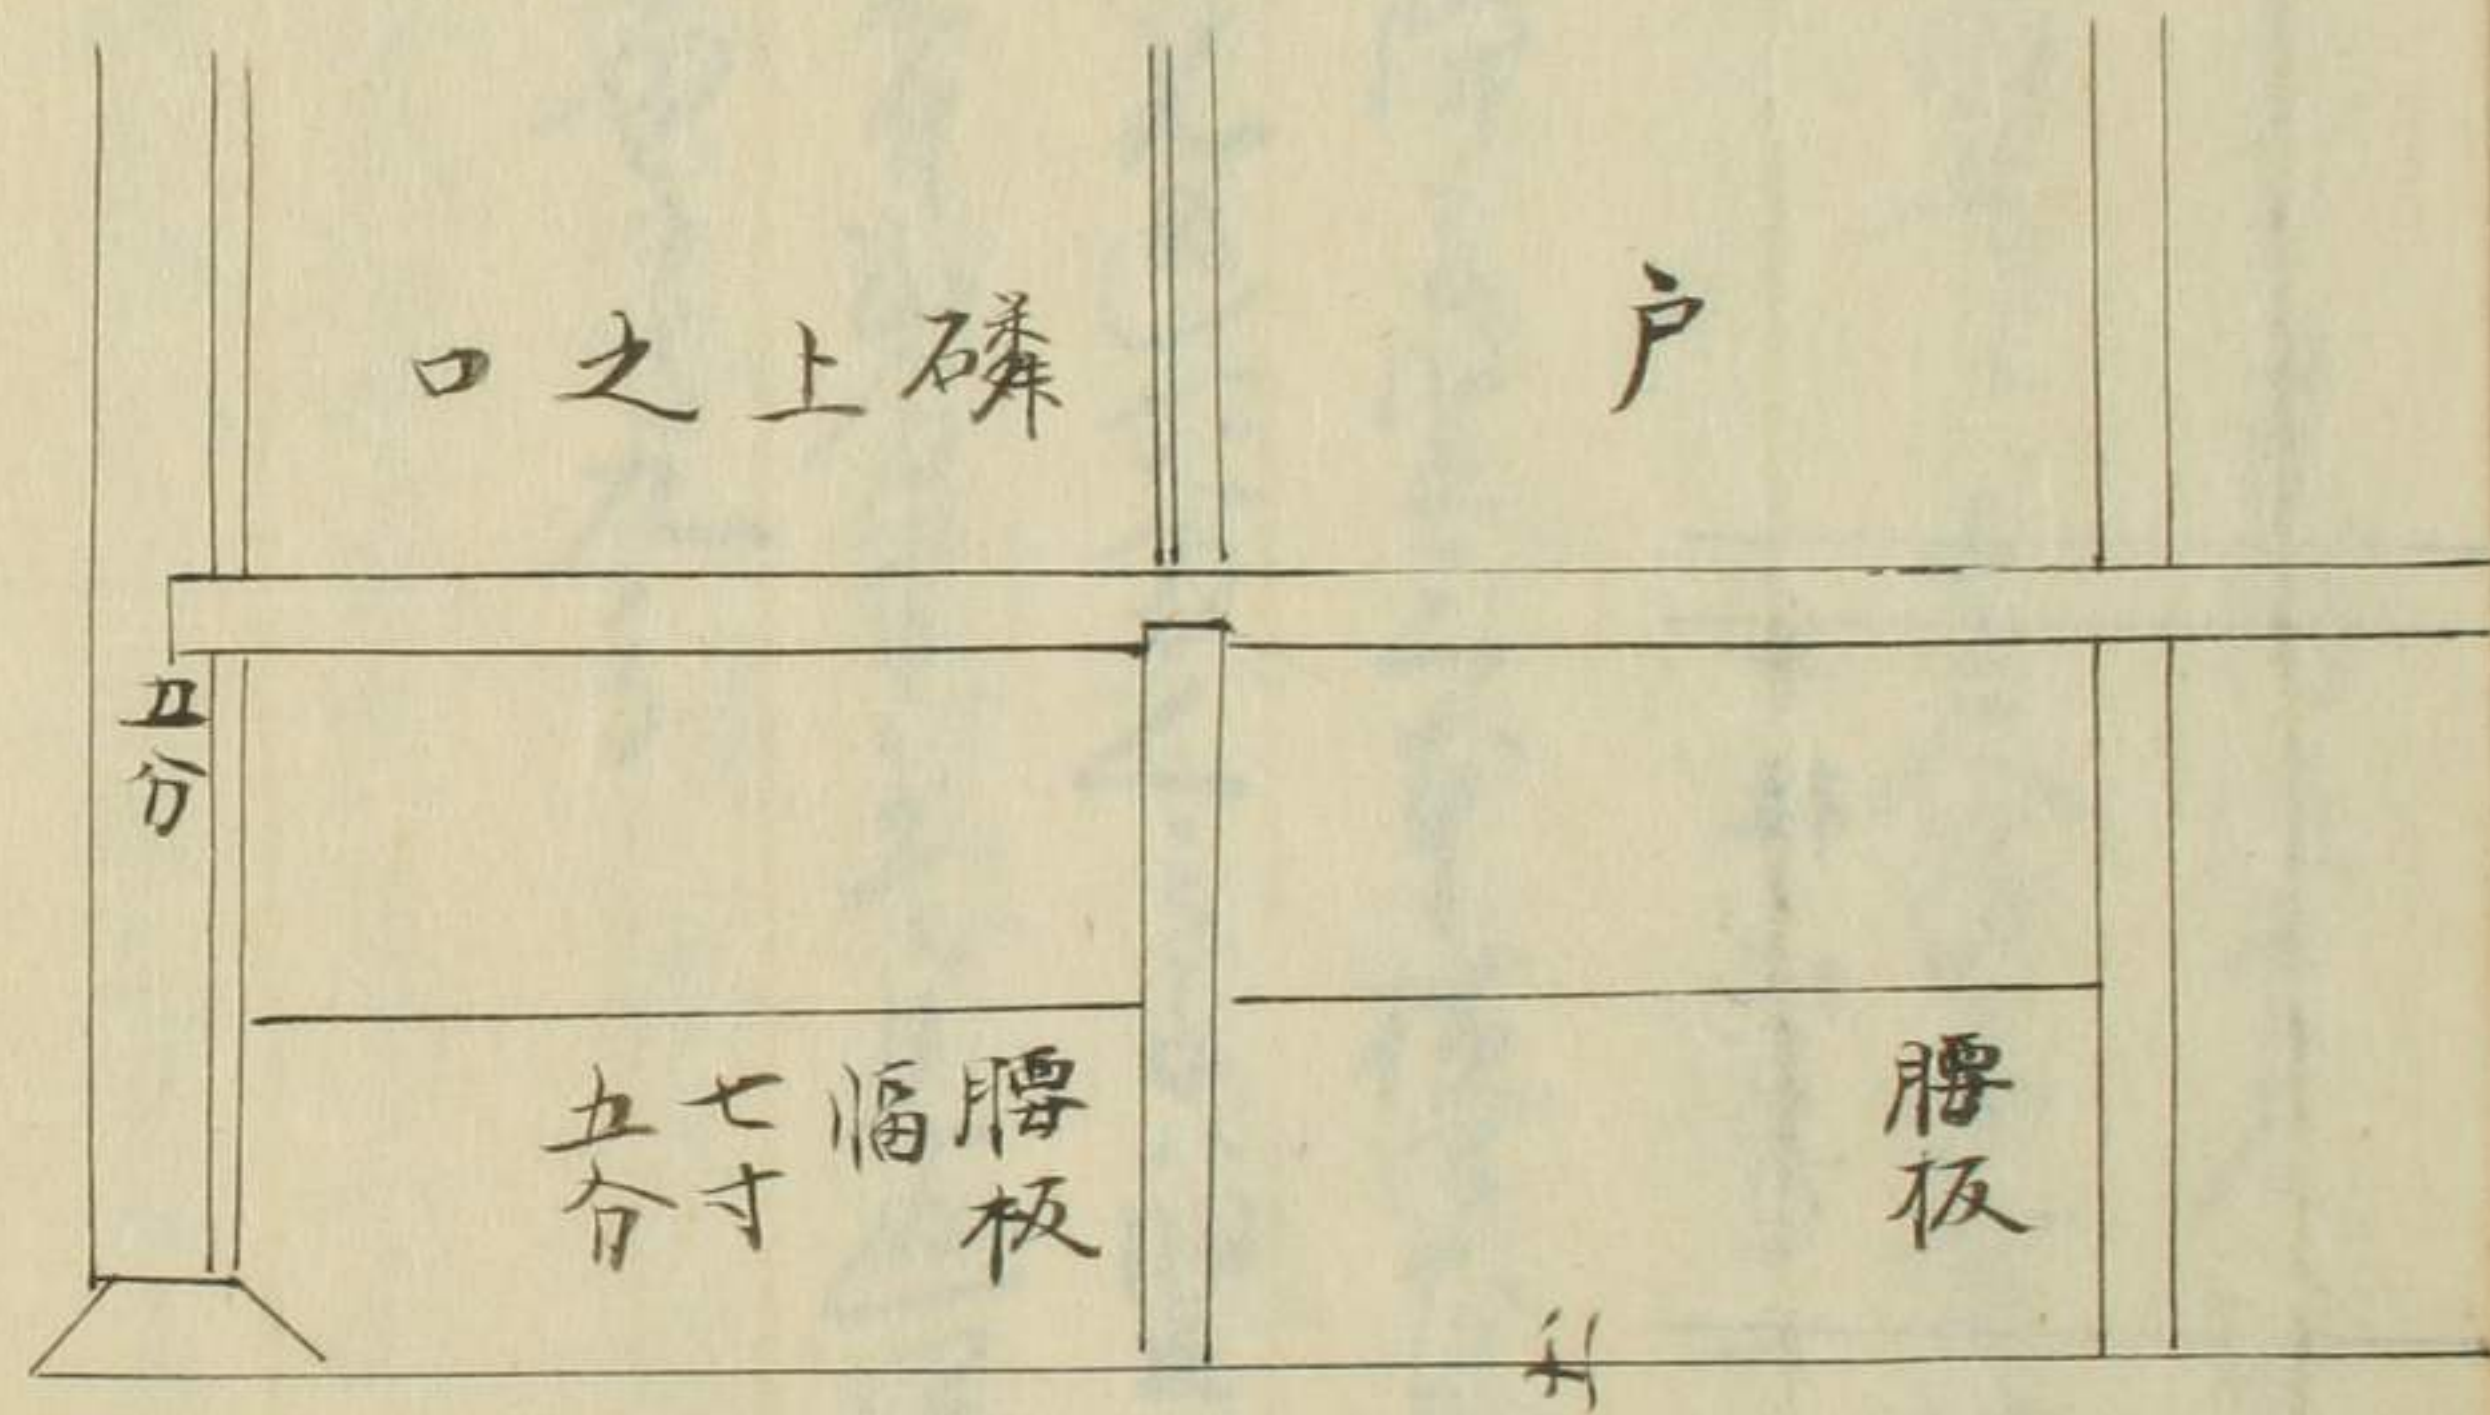 戸
磷上之口
五分
腰板
腰板
幅
七寸
五分